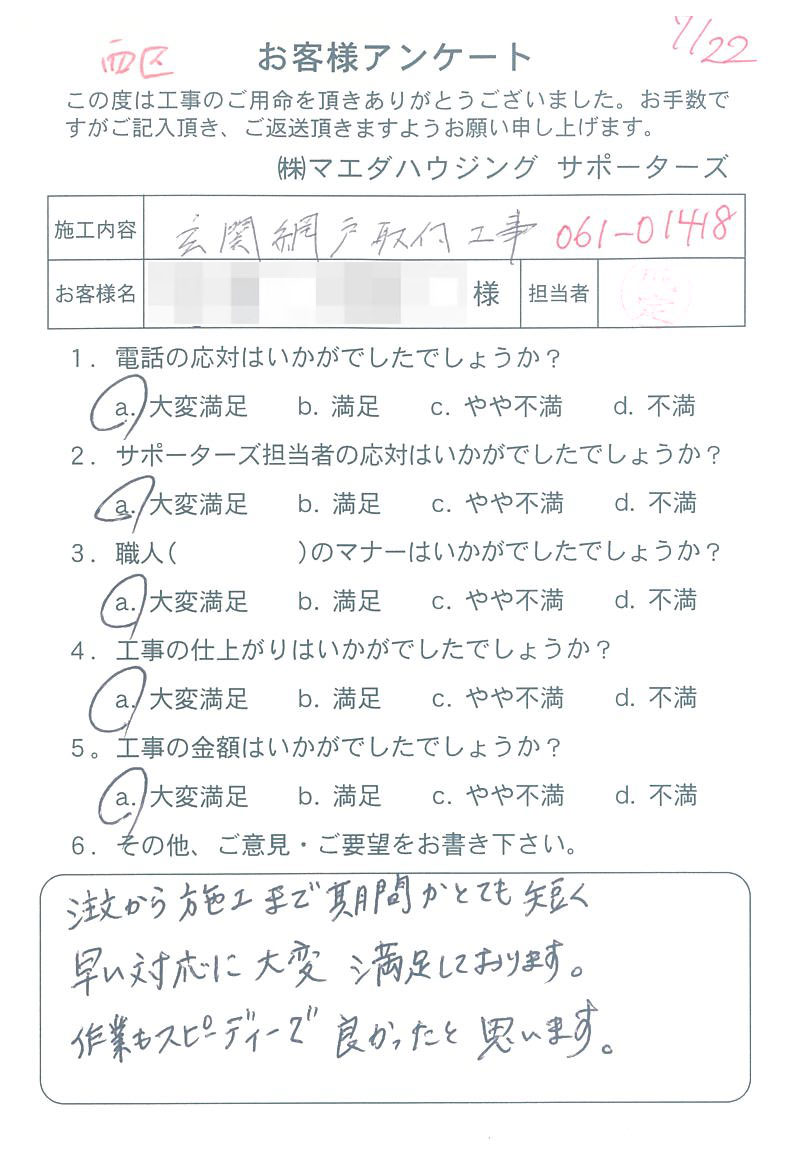 西区
お客様アンケート
7/22
この度は工事のご用命を頂きありがとうございました。お手数で
すがご記入頂き、ご返送頂きますようお願い申し上げます。
㈱マエダハウジング サポーターズ
施工内容 玄関網戸取付工事 061-01418
お客様名 様 担当者
1. 電話の応対はいかがでしたでしょうか？
a. 大変満足 b. 満足 c. やや不満 d. 不満
2. サポーターズ担当者の応対はいかがでしたでしょうか？
a. 大変満足 b. 満足 c. やや不満 d. 不満
3. 職人( )のマナーはいかがでしたでしょうか？
a. 大変満足 b. 満足 c. やや不満 d. 不満
4. 工事の仕上がりはいかがでしたでしょうか？
a. 大変満足 b. 満足 c. やや不満 d. 不満
5。工事の金額はいかがでしたでしょうか？
a. 大変満足 b. 満足 c. やや不満 d. 不満
6. その他、ご意見・ご要望をお書き下さい。
注文から施工まで期間がとても短く
早い対応に大変満足しております。
作業もスピーディーで良かったと思います。